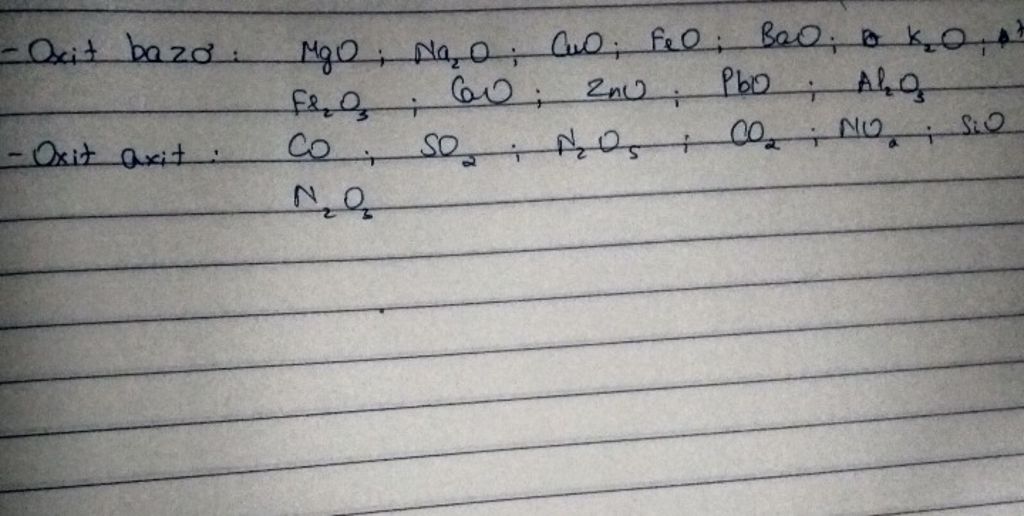 - Oxit bazơ : MgO ; Na₂O ; CuO ; FeO ; BaO ; K₂O ;
Fe₂O₃ ; CaO ; ZnO ; PbO ; Al₂O₃
- Oxit axit : CO ; SO₂ ; N₂O₅ ; CO₂ ; NO₂ ; SiO
N₂O₃